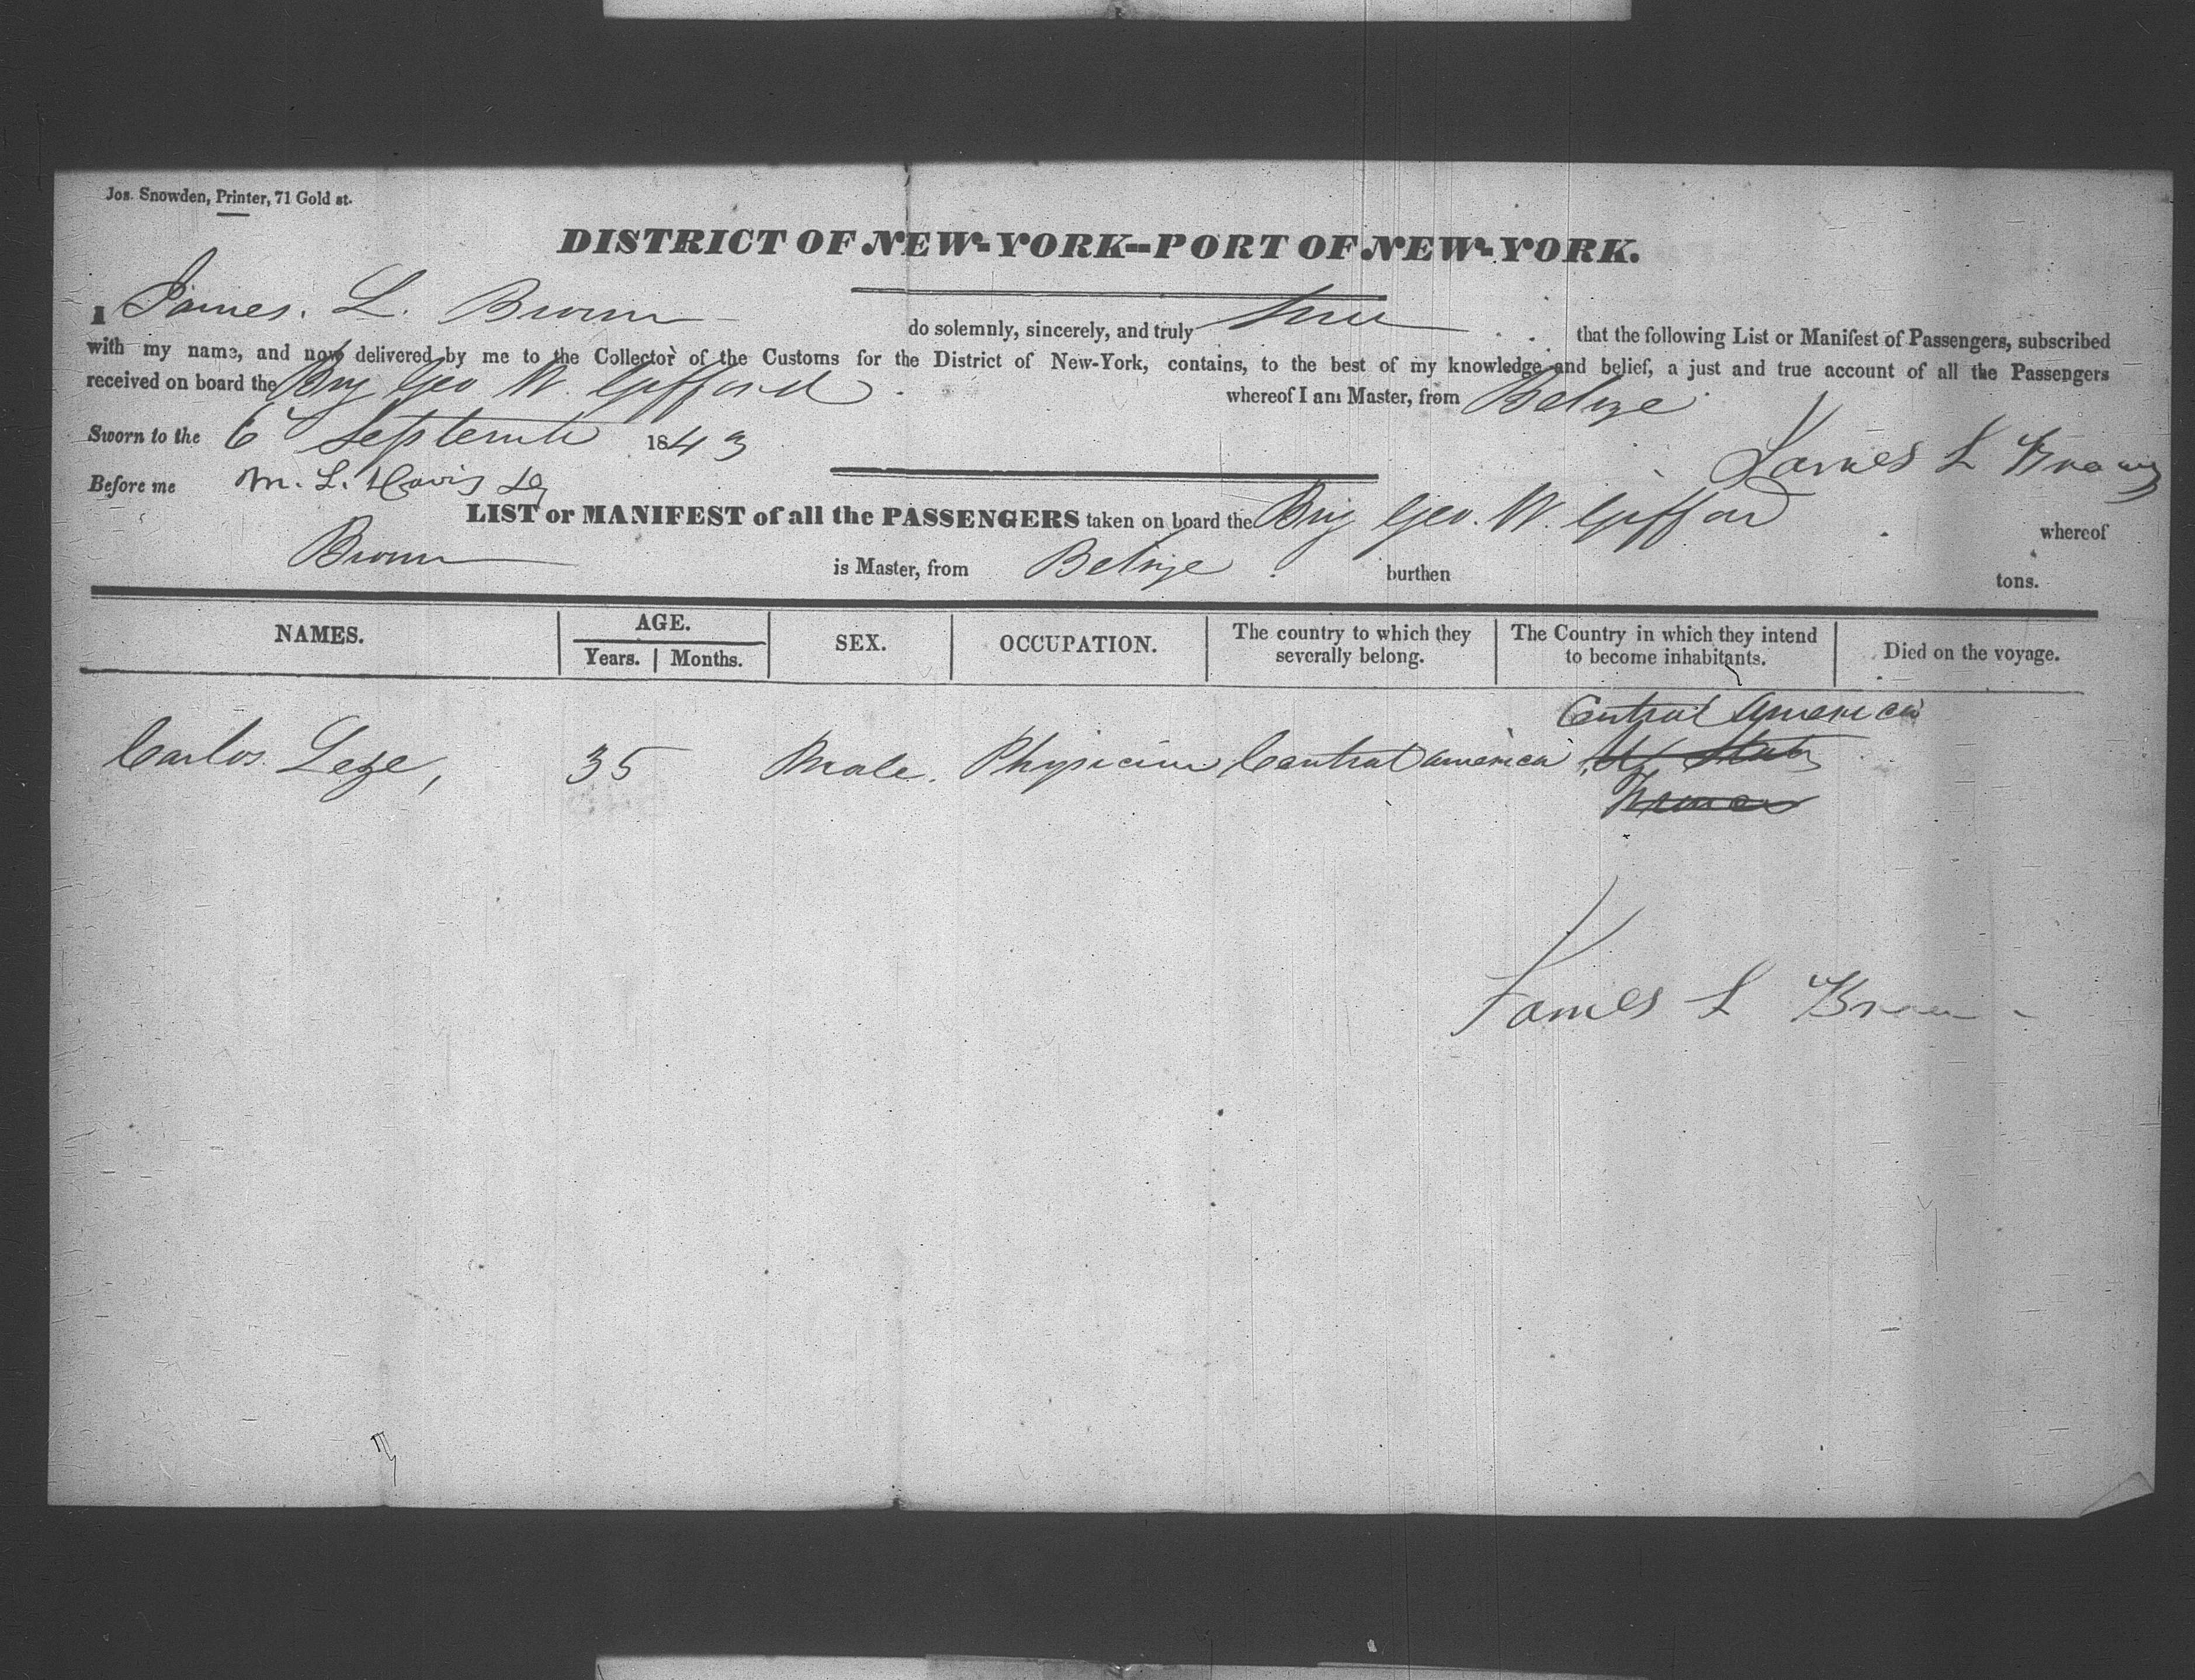 Jos. Snowden, Printer, 71 Gold st.
DISTRICT OF NEW-YORK--PORT OF NEW-YORK.
I James. L. Brown do solemnly, sincerely, and truly that the following List or Manifest of Passengers, subscribed
with my name, and now delivered by me to the Collector of the Customs for the District of New-York, contains, to the best of my knowledge and belief, a just and true account of all the Passengers
received on board the Brig Geo W. Gifford whereof I am Master, from Belize
Sworn to the 6 September 1843
James L Brown
Before me M. L. Davis
LIST or MANIFEST of all the PASSENGERS taken on board the Brig Geo. W. Gifford whereof
Brown is Master, from Belize burthen tons.
NAMES. AGE. Years. Months. SEX. OCCUPATION. The country to which they severally belong. The Country in which they intend to become inhabitants. Died on the voyage.
Central America
Carlos Leze, 35 Male. Physician Central America U States
France
James L Brown